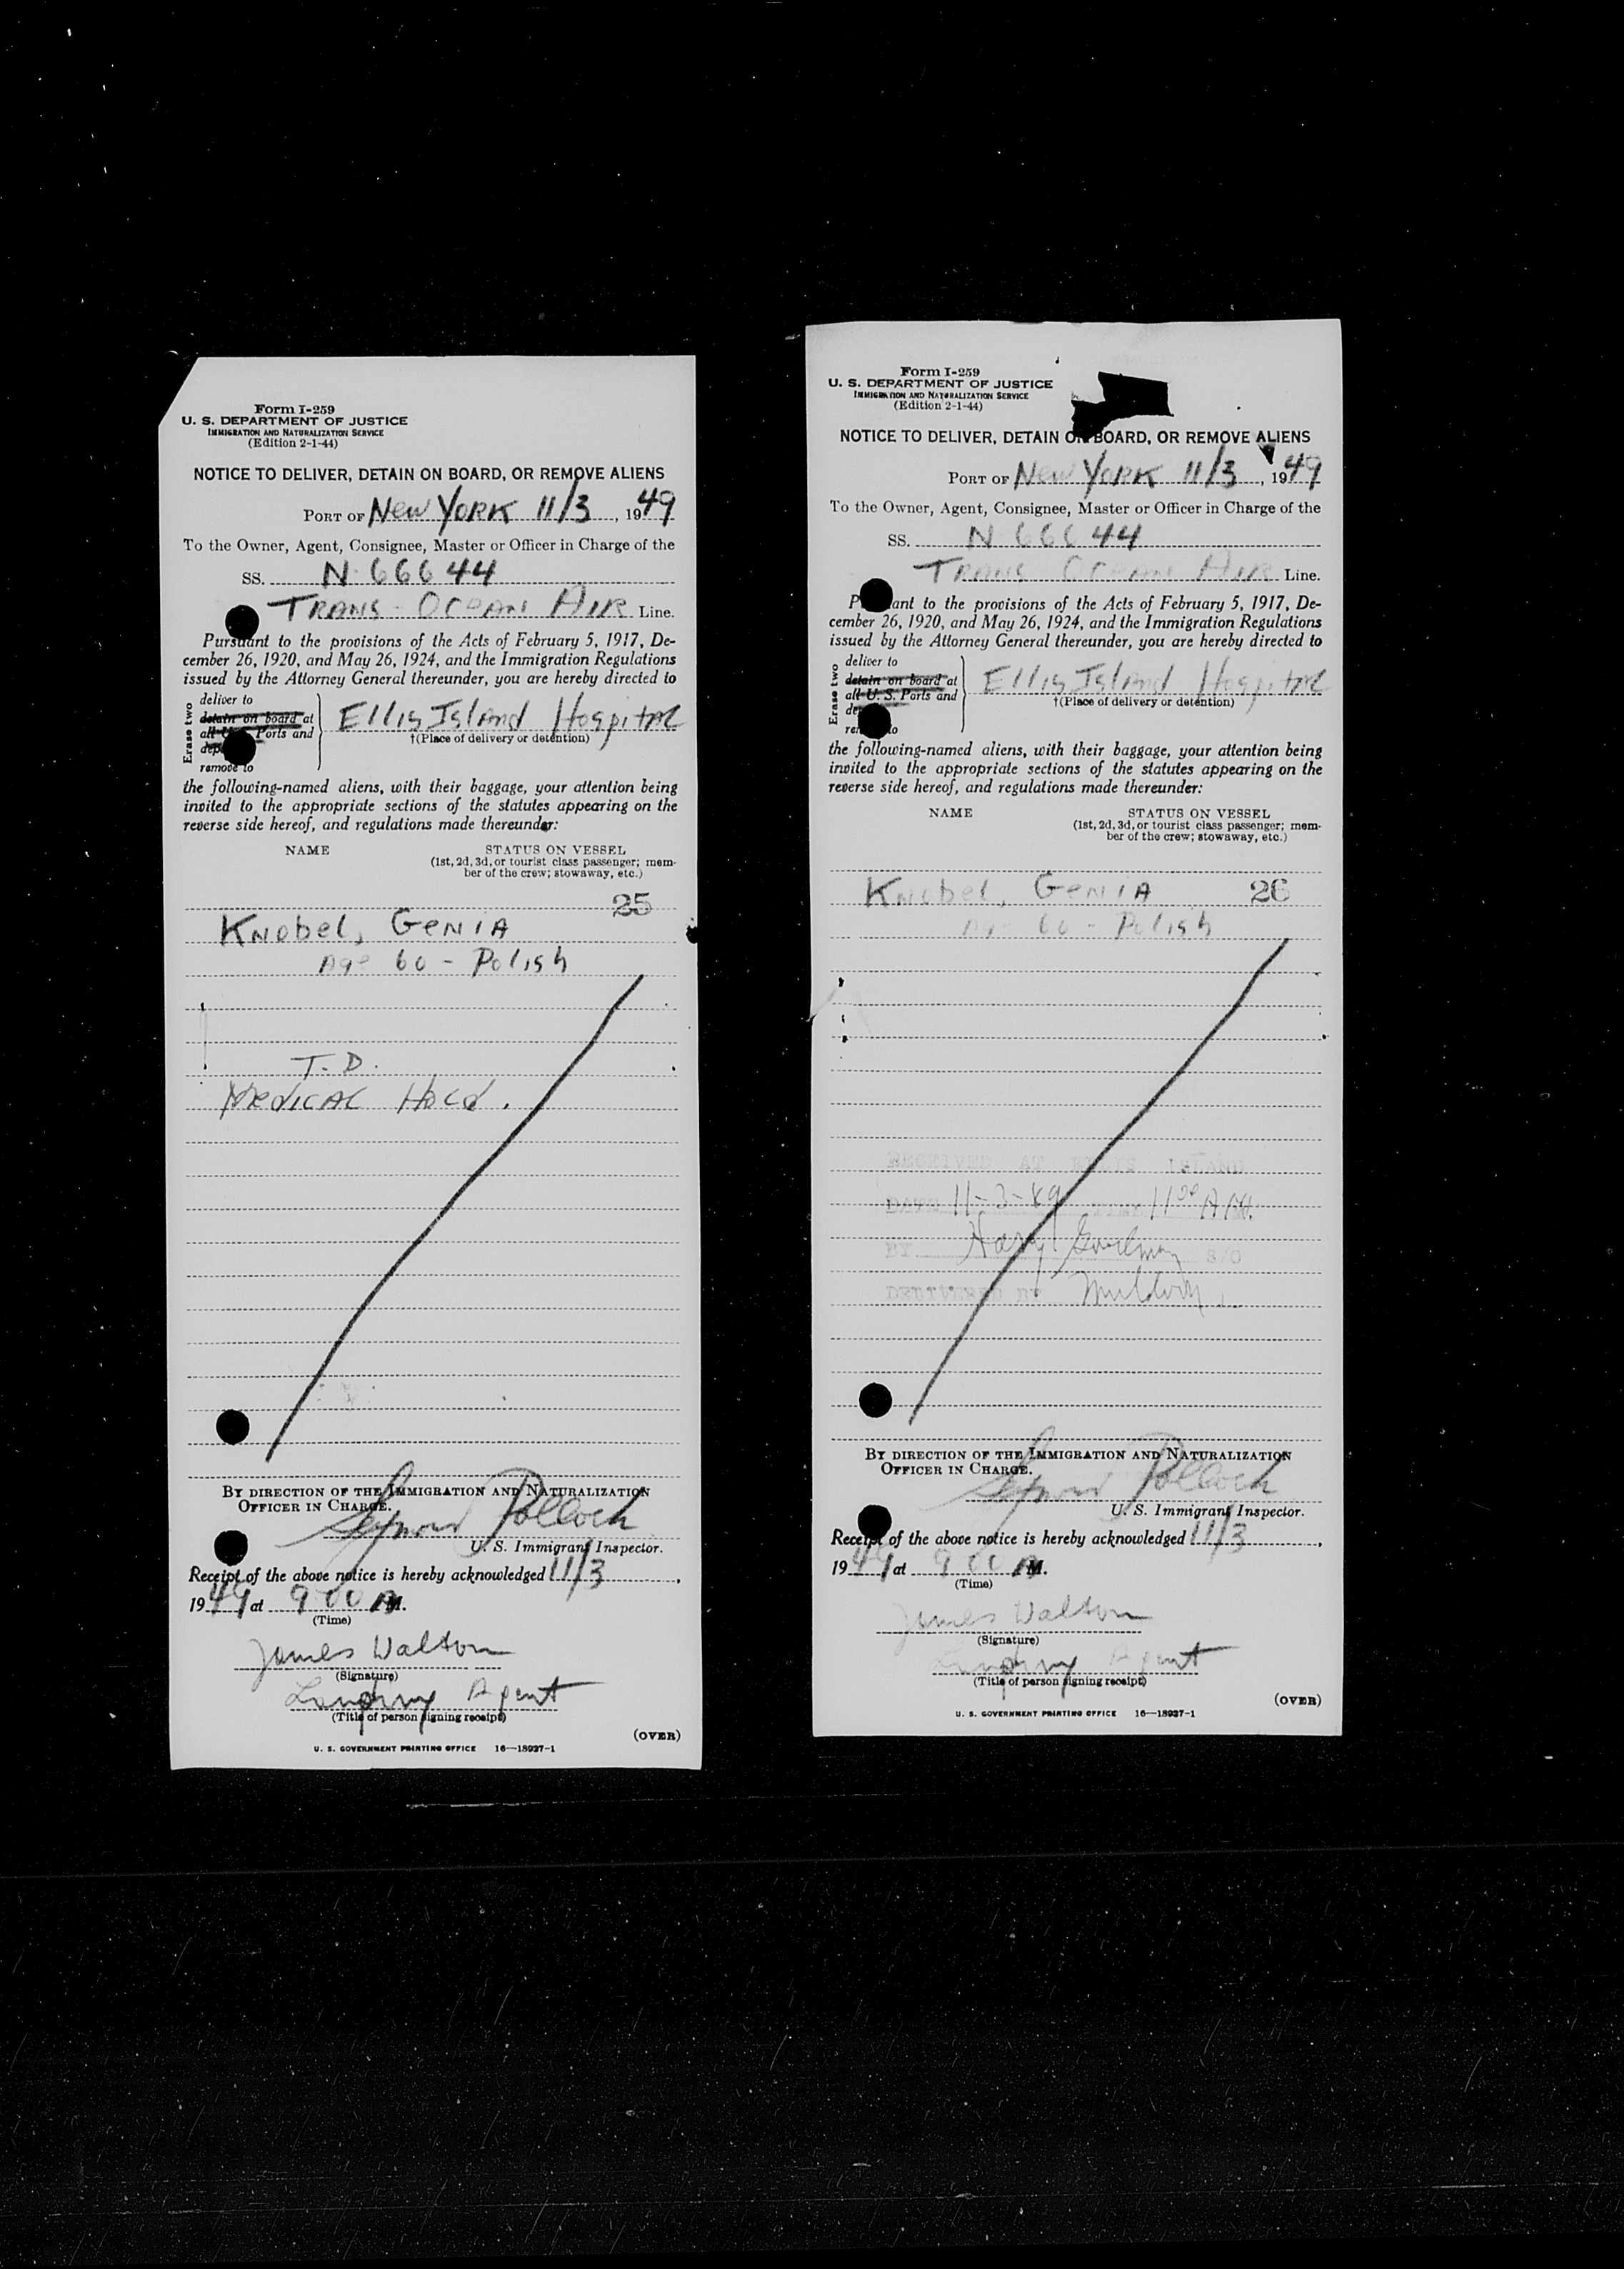 Form I-259
U. S. DEPARTMENT OF JUSTICE
IMMIGRATION AND NATURALIZATION SERVICE
(Edition 2-1-44)
NOTICE TO DELIVER, DETAIN ON BOARD, OR REMOVE ALIENS
PORT OF New York 11/3, 1949
To the Owner, Agent, Consignee, Master or Officer in Charge of the
SS. N 66644
TRANS-OCEAN AIR Line.
Pursuant to the provisions of the Acts of February 5, 1917, De-
cember 26, 1920, and May 26, 1924, and the Immigration Regulations
issued by the Attorney General thereunder, you are hereby directed to
Erase two
deliver to
detain on board at
all U. S. Ports and
dep
remove to
Ellis Island Hospital
†(Place of delivery or detention)
the following-named aliens, with their baggage, your attention being
invited to the appropriate sections of the statutes appearing on the
reverse side hereof, and regulations made thereunder:
NAME STATUS ON VESSEL
(1st, 2d, 3d, or tourist class passenger; mem-
ber of the crew; stowaway, etc.)
25
Knobel, Genia
Age 60 - Polish
T. D.
Medical Hold.
BY DIRECTION OF THE IMMIGRATION AND NATURALIZATION
OFFICER IN CHARGE.
Seymour Pollock
U. S. Immigrant Inspector.
Receipt of the above notice is hereby acknowledged 11/3,
1949 at 9 00 AM.
(Time)
James Walton
(Signature)
Landing Agent
(Title of person signing receipt)
(OVER)
U. S. GOVERNMENT PRINTING OFFICE 16—18927-1
Form I-259
U. S. DEPARTMENT OF JUSTICE
IMMIGRATION AND NATURALIZATION SERVICE
(Edition 2-1-44)
NOTICE TO DELIVER, DETAIN ON BOARD, OR REMOVE ALIENS
PORT OF New York 11/3, 1949
To the Owner, Agent, Consignee, Master or Officer in Charge of the
SS. N 66644
TRANS OCEAN AIR Line.
P ant to the provisions of the Acts of February 5, 1917, De-
cember 26, 1920, and May 26, 1924, and the Immigration Regulations
issued by the Attorney General thereunder, you are hereby directed to
Erase two
deliver to
detain on board at
all U. S. Ports and
de
rem to
Ellis Island Hospital
†(Place of delivery or detention)
the following-named aliens, with their baggage, your attention being
invited to the appropriate sections of the statutes appearing on the
reverse side hereof, and regulations made thereunder:
NAME STATUS ON VESSEL
(1st, 2d, 3d, or tourist class passenger; mem-
ber of the crew; stowaway, etc.)
Knobel, Genia 26
Age 60 - Polish
RECEIVED AT ELLIS ISLAND
DATE 11-3-49 TIME 11 00 AM.
BY Harry Goodman S/O
DELIVERED BY
BY DIRECTION OF THE IMMIGRATION AND NATURALIZATION
OFFICER IN CHARGE.
Seymour Pollock
U. S. Immigrant Inspector.
Receipt of the above notice is hereby acknowledged 11/3,
1949 at 9 00 AM.
(Time)
James Walton
(Signature)
Landing Agent
(Title of person signing receipt)
(OVER)
U. S. GOVERNMENT PRINTING OFFICE 16—18927-1